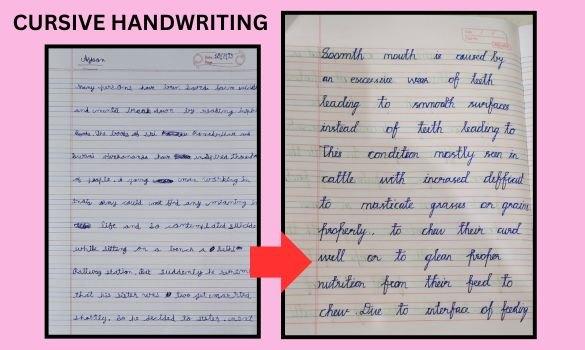 CURSIVE HANDWRITING
Many persons have been saved from
and mental break down by reading
The books of Sri and
has thousa
of people. A young man working in
could not find any meaning i
life and so contemplated suicide
while sitting on a bench a
Railway station. But suddenly he
that his sister was two get married
shortly. So he decided to
Soomth mouth is caused by
an excessive wear of teeth
leading to smmoth surfaces
instead of teeth leading to
This condition mostly seen in
cattle with incrased defficult
to masticate grasses or grains
properly.. to chew their curd
well or to glean proper
nutrition from their feed to
chew. Due to interface of feeding